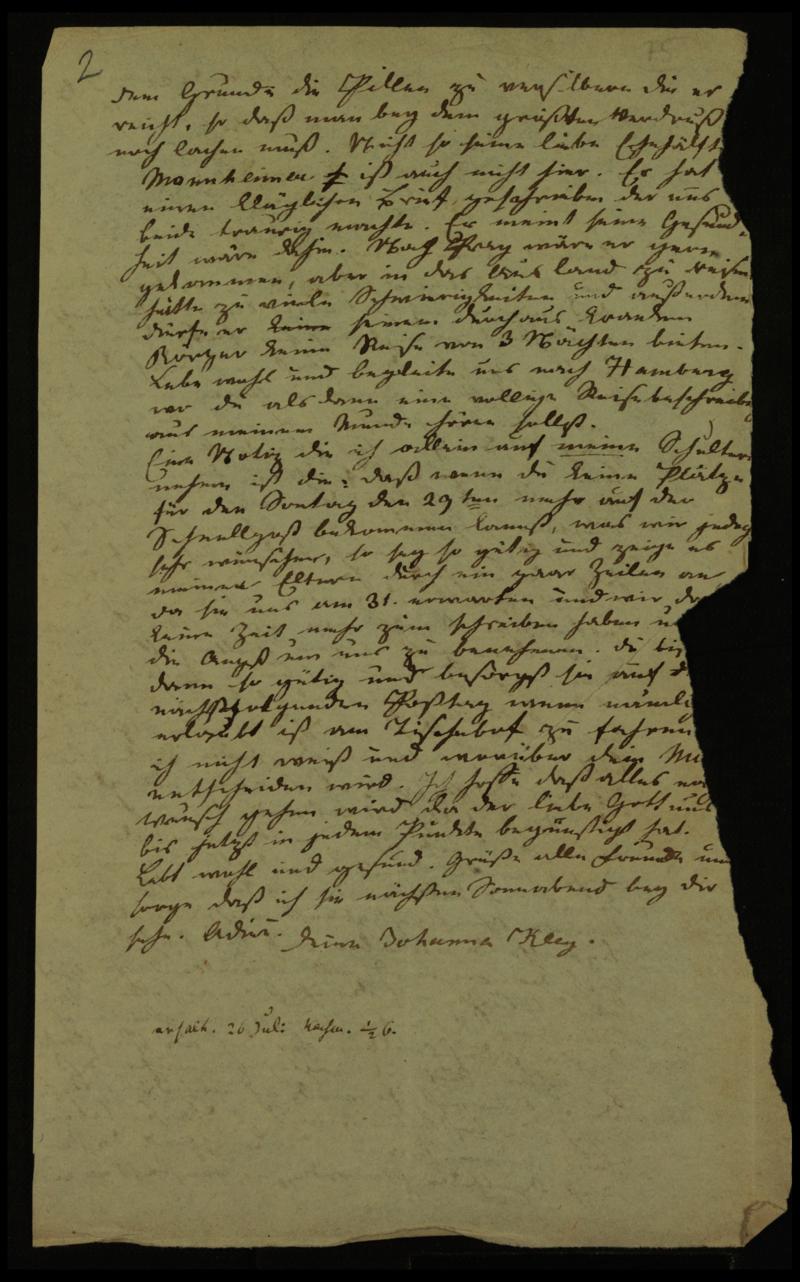 2
dem Grunde die Pillen zu versilbern die er
reicht, so daß man bey dem größten Verdruß
noch lachen muß. Nicht so seine liebe Ehehälft
Mannheimer ist auch nicht hier. Er hat
einen kläglichen Brief geschrieben der uns
beide traurig machte. Er meint seine Gesund-
heit wäre dahin. Nach Prag wäre er gern
gekommen, aber in das Ausland zu reisen
hätte zu viele Schwierigkeiten und außerdem
dürfe er seinem durchaus kranken
Körper keine Reise von 3 Nächten bieten.
Lebe wohl und begleite uns nach Hamburg
wo du alsdann eine vollige Reisebeschreib
aus meinem Munde hören sollst.
Eine Notiz die ich allein auf meine Schulter
nehme ist die: daß wenn du keine Plätze
für den Sontag den 29ten mehr auf der
Schnellpost bekommen kannst, was wir jedoch
sehr wünschen, so sey so gütig und zeige es
meinen Eltern durch ein paar Zeilen an
da sie uns am 31. erwarten und wir d
keine Zeit mehr zum schreiben haben u
die Angst um uns zu benehmen. du bi
dann so gütig und besorgst sie auf d
nächstfolgenden Posttag wenn nämli
erlaubt ist am Tischebof zu fahren
ich nicht weiß und worüber dein Mu
entscheiden wird. Ich hoffe daß alles na
Wunsch gehen wird da der liebe Gott uns
bis jetzt in jedem Punkte begünstigt hat.
Lebt wohl und gesund. Grüße alle Freunde un
sorge daß ich sie nächsten Sonnabend bey dir
sehe. Adieu. Deine Johanna Kley.
erhalt. 26 Juli Nachm. ½ 6.